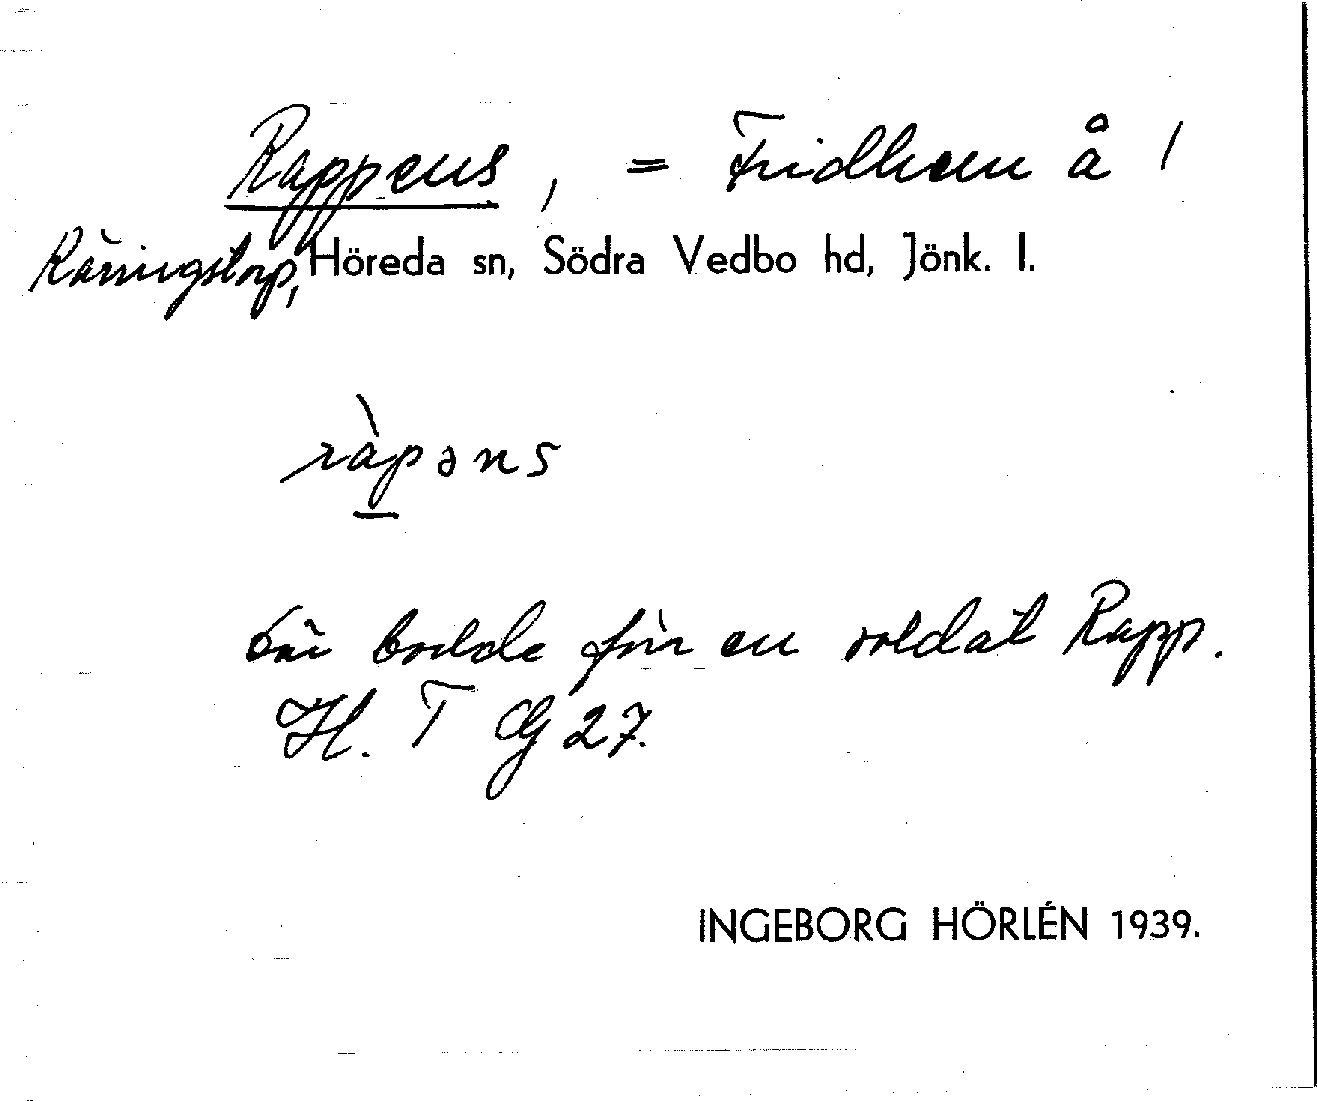 Rappens, = Fridhem å /
Räningstorp, Höreda sn, Södra Vedbo hd, Jönk. l.
ràpəns
här bodde för en soldat Rapp.
H. T G 27.
INGEBORG HÖRLÉN 1939.